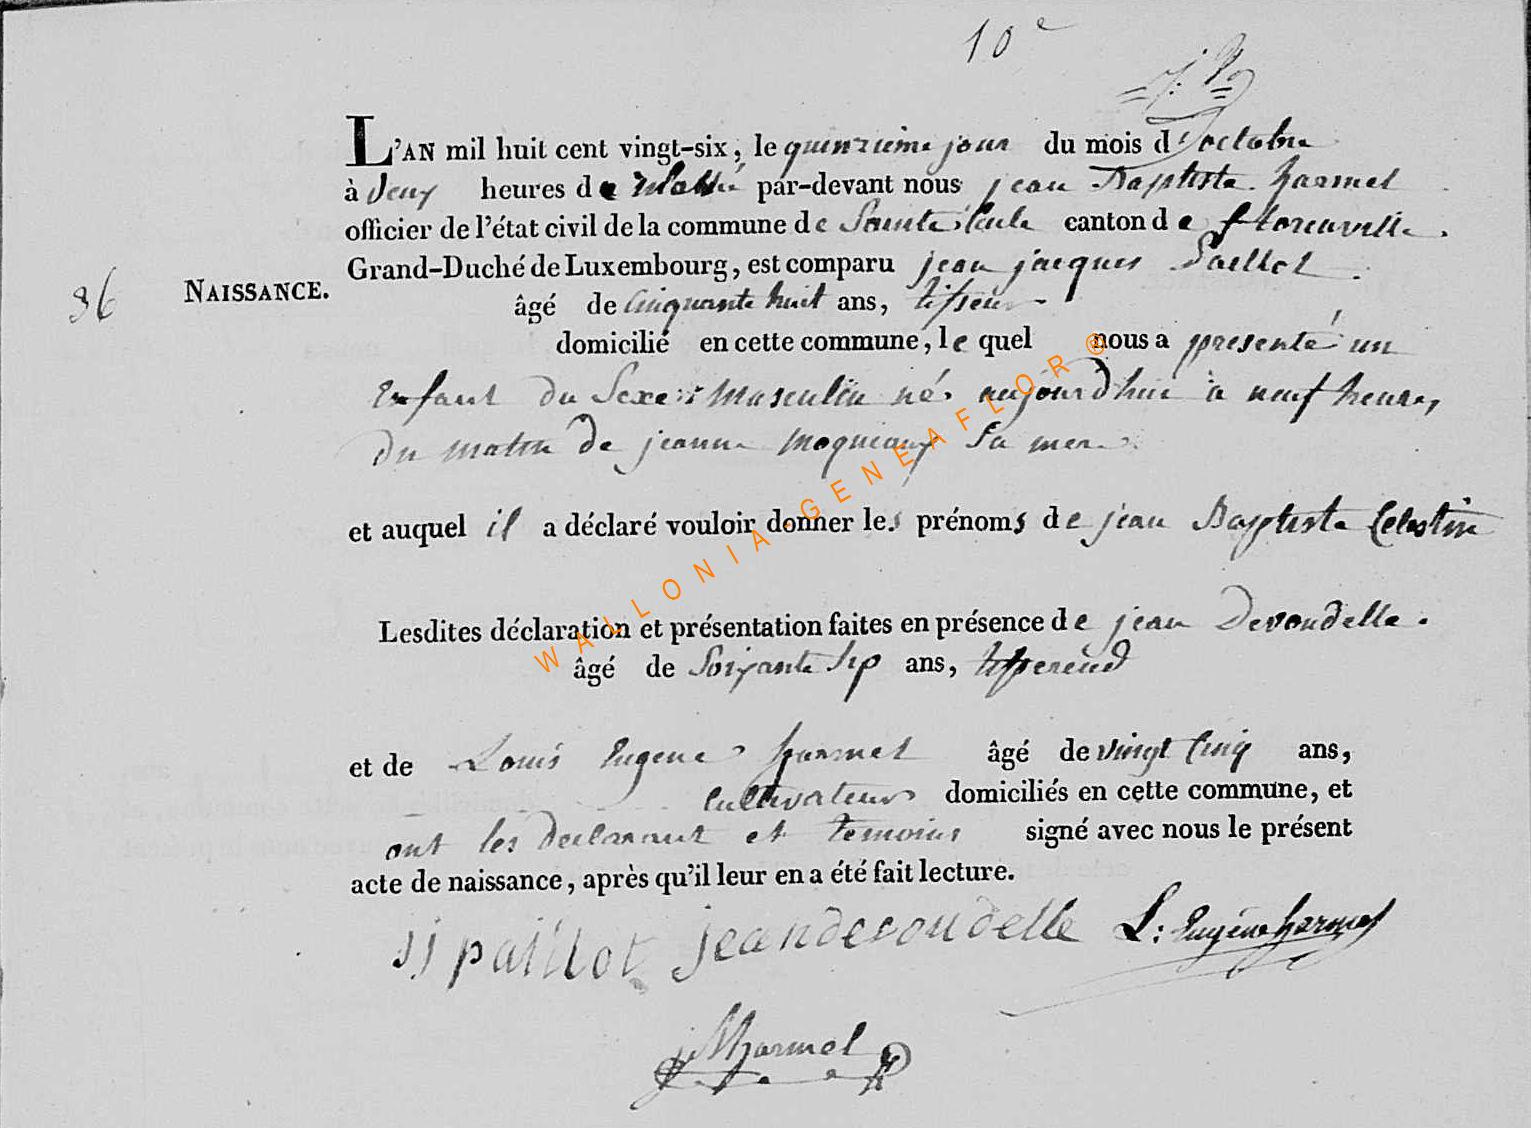 10e
L'AN mil huit cent vingt-six, le quinzieme jour du mois d'octobre
à deux heures de relevé par-devant nous jean Baptiste harmel
officier de l'état civil de la commune de Sainte Cecile canton de florenville.
Grand-Duché de Luxembourg, est comparu jean jacques Paillot
36 NAISSANCE.
âgé de Cinquante huit ans, tisseur
domicilié en cette commune, le quel nous a presenté un
Enfant du Sexe masculin né aujourd'hui à neuf heures,
du matin de jeanne moqueaux Sa mere
et auquel il a déclaré vouloir donner les prénoms de jean Baptiste Celestin
Lesdites déclaration et présentation faites en présence de jean Devoudelle.
âgé de Soixante Sep ans, tisserend
et de Louis Eugene harmel âgé de vingt Cinq ans,
Cultivateur domiciliés en cette commune, et
ont les declarant et temoins signé avec nous le présent
acte de naissance, après qu'il leur en a été fait lecture.
jj paillot jean devoudelle L: Eugène harmel
harmel
WALLONIA-GENEAFLOR ®